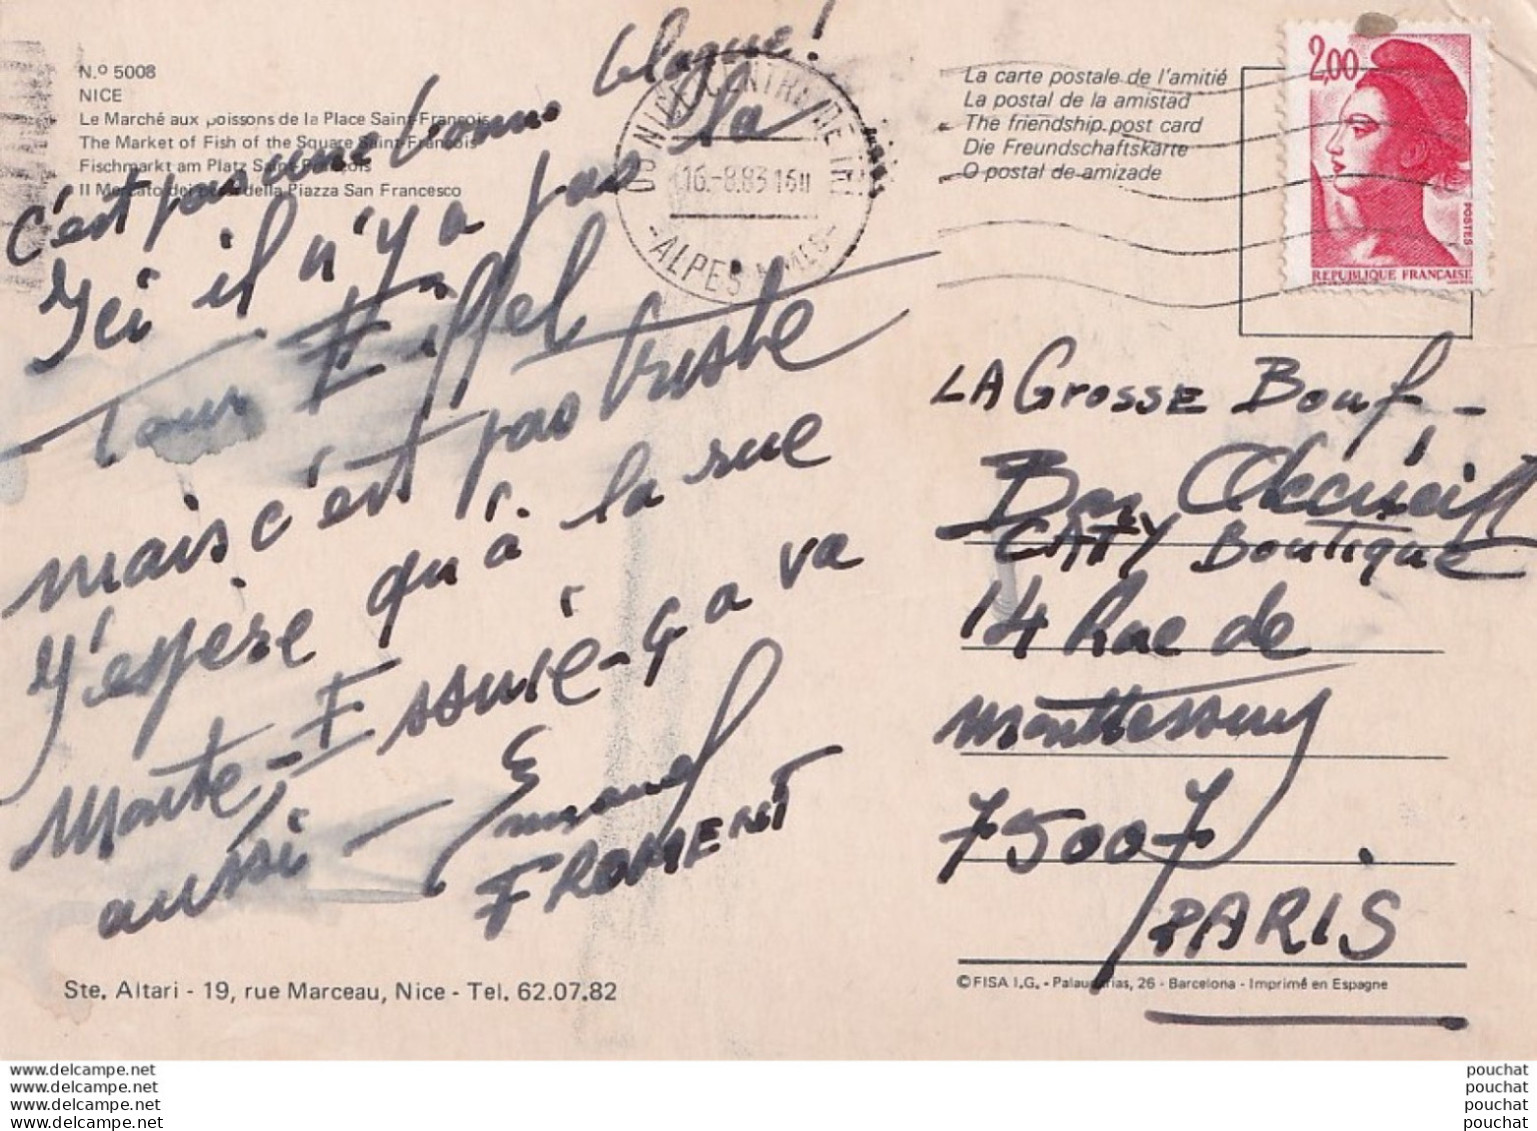 N.º 5008
NICE
Le Marché aux poissons de la Place Saint-François
The Market of Fish of the Square Saint-François
Fischmarkt am Platz Saint-François
Il Mercato dei pesci della Piazza San Francesco
c'est pas une bonne blague!
Ici il n'y a pas la
tour Eiffel
mais c'est pas triste
J'espère qu'à la rue
Monte-Essuie-ça va
aussi - Emanuel
FROMENT
Ste. Altari - 19, rue Marceau, Nice - Tel. 62.07.82
06 NICE CENTRE DE TRI
16-8.83 16H
-ALPES MMES-
La carte postale de l'amitié
La postal de la amistad
The friendship post card
Die Freundschaftskarte
O postal de amizade
2,00
POSTES
REPUBLIQUE FRANÇAISE
LA GROSSE Bouf -
CATY Boutique
14 Rue de
Monttessuy
75007
PARIS
© FISA I.G. - Palaudarias, 26 - Barcelona - Imprimé en Espagne
www.delcampe.net
www.delcampe.net
www.delcampe.net
www.delcampe.net
pouchat
pouchat
pouchat
pouchat